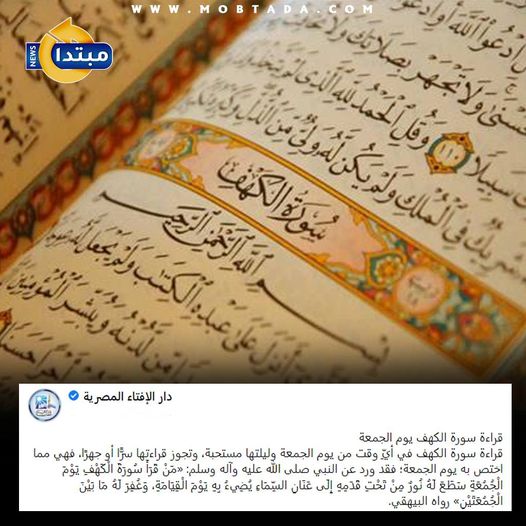 WWW.MOBTADA.COM
مبتدا
NEWS
وَلَا تَجْهَرْ بِصَلَاتِكَ وَلَا
سَبِيلًا ١١٠ وَقُلِ الْحَمْدُ لِلَّهِ الَّذِي لَمْ يَتَّخِذْ
فِي الْمُلْكِ وَلَمْ يَكُن لَّهُ وَلِيٌّ مِّنَ الذُّلِّ وَكَبِّرْهُ
سُورَةُ الْكَهْفِ
بِسْمِ اللَّهِ الرَّحْمَٰنِ الرَّحِيمِ
أَنزَلَ عَلَىٰ عَبْدِهِ الْكِتَٰبَ وَلَمْ يَجْعَل لَّهُ
مِّن لَّدُنْهُ وَيُبَشِّرَ الْمُؤْمِنِينَ
دار الإفتاء المصرية
قراءة سورة الكهف يوم الجمعة
قراءة سورة الكهف في أيِّ وقت من يوم الجمعة وليلتها مستحبة، وتجوز قراءتها سرًّا أو جهرًا، فهي مما
اختص به يوم الجمعة؛ فقد ورد عن النبي صلى الله عليه وآله وسلم: «مَنْ قَرَأَ سُورَةَ الْكَهْفِ يَوْمَ
الْجُمُعَةِ سَطَعَ لَهُ نُورٌ مِنْ تَحْتِ قَدَمِهِ إِلَى عَنَانِ السَّمَاءِ يُضِيءُ بِهِ يَوْمَ الْقِيَامَةِ، وَغُفِرَ لَهُ مَا بَيْنَ
الْجُمُعَتَيْنِ» رواه البيهقي.